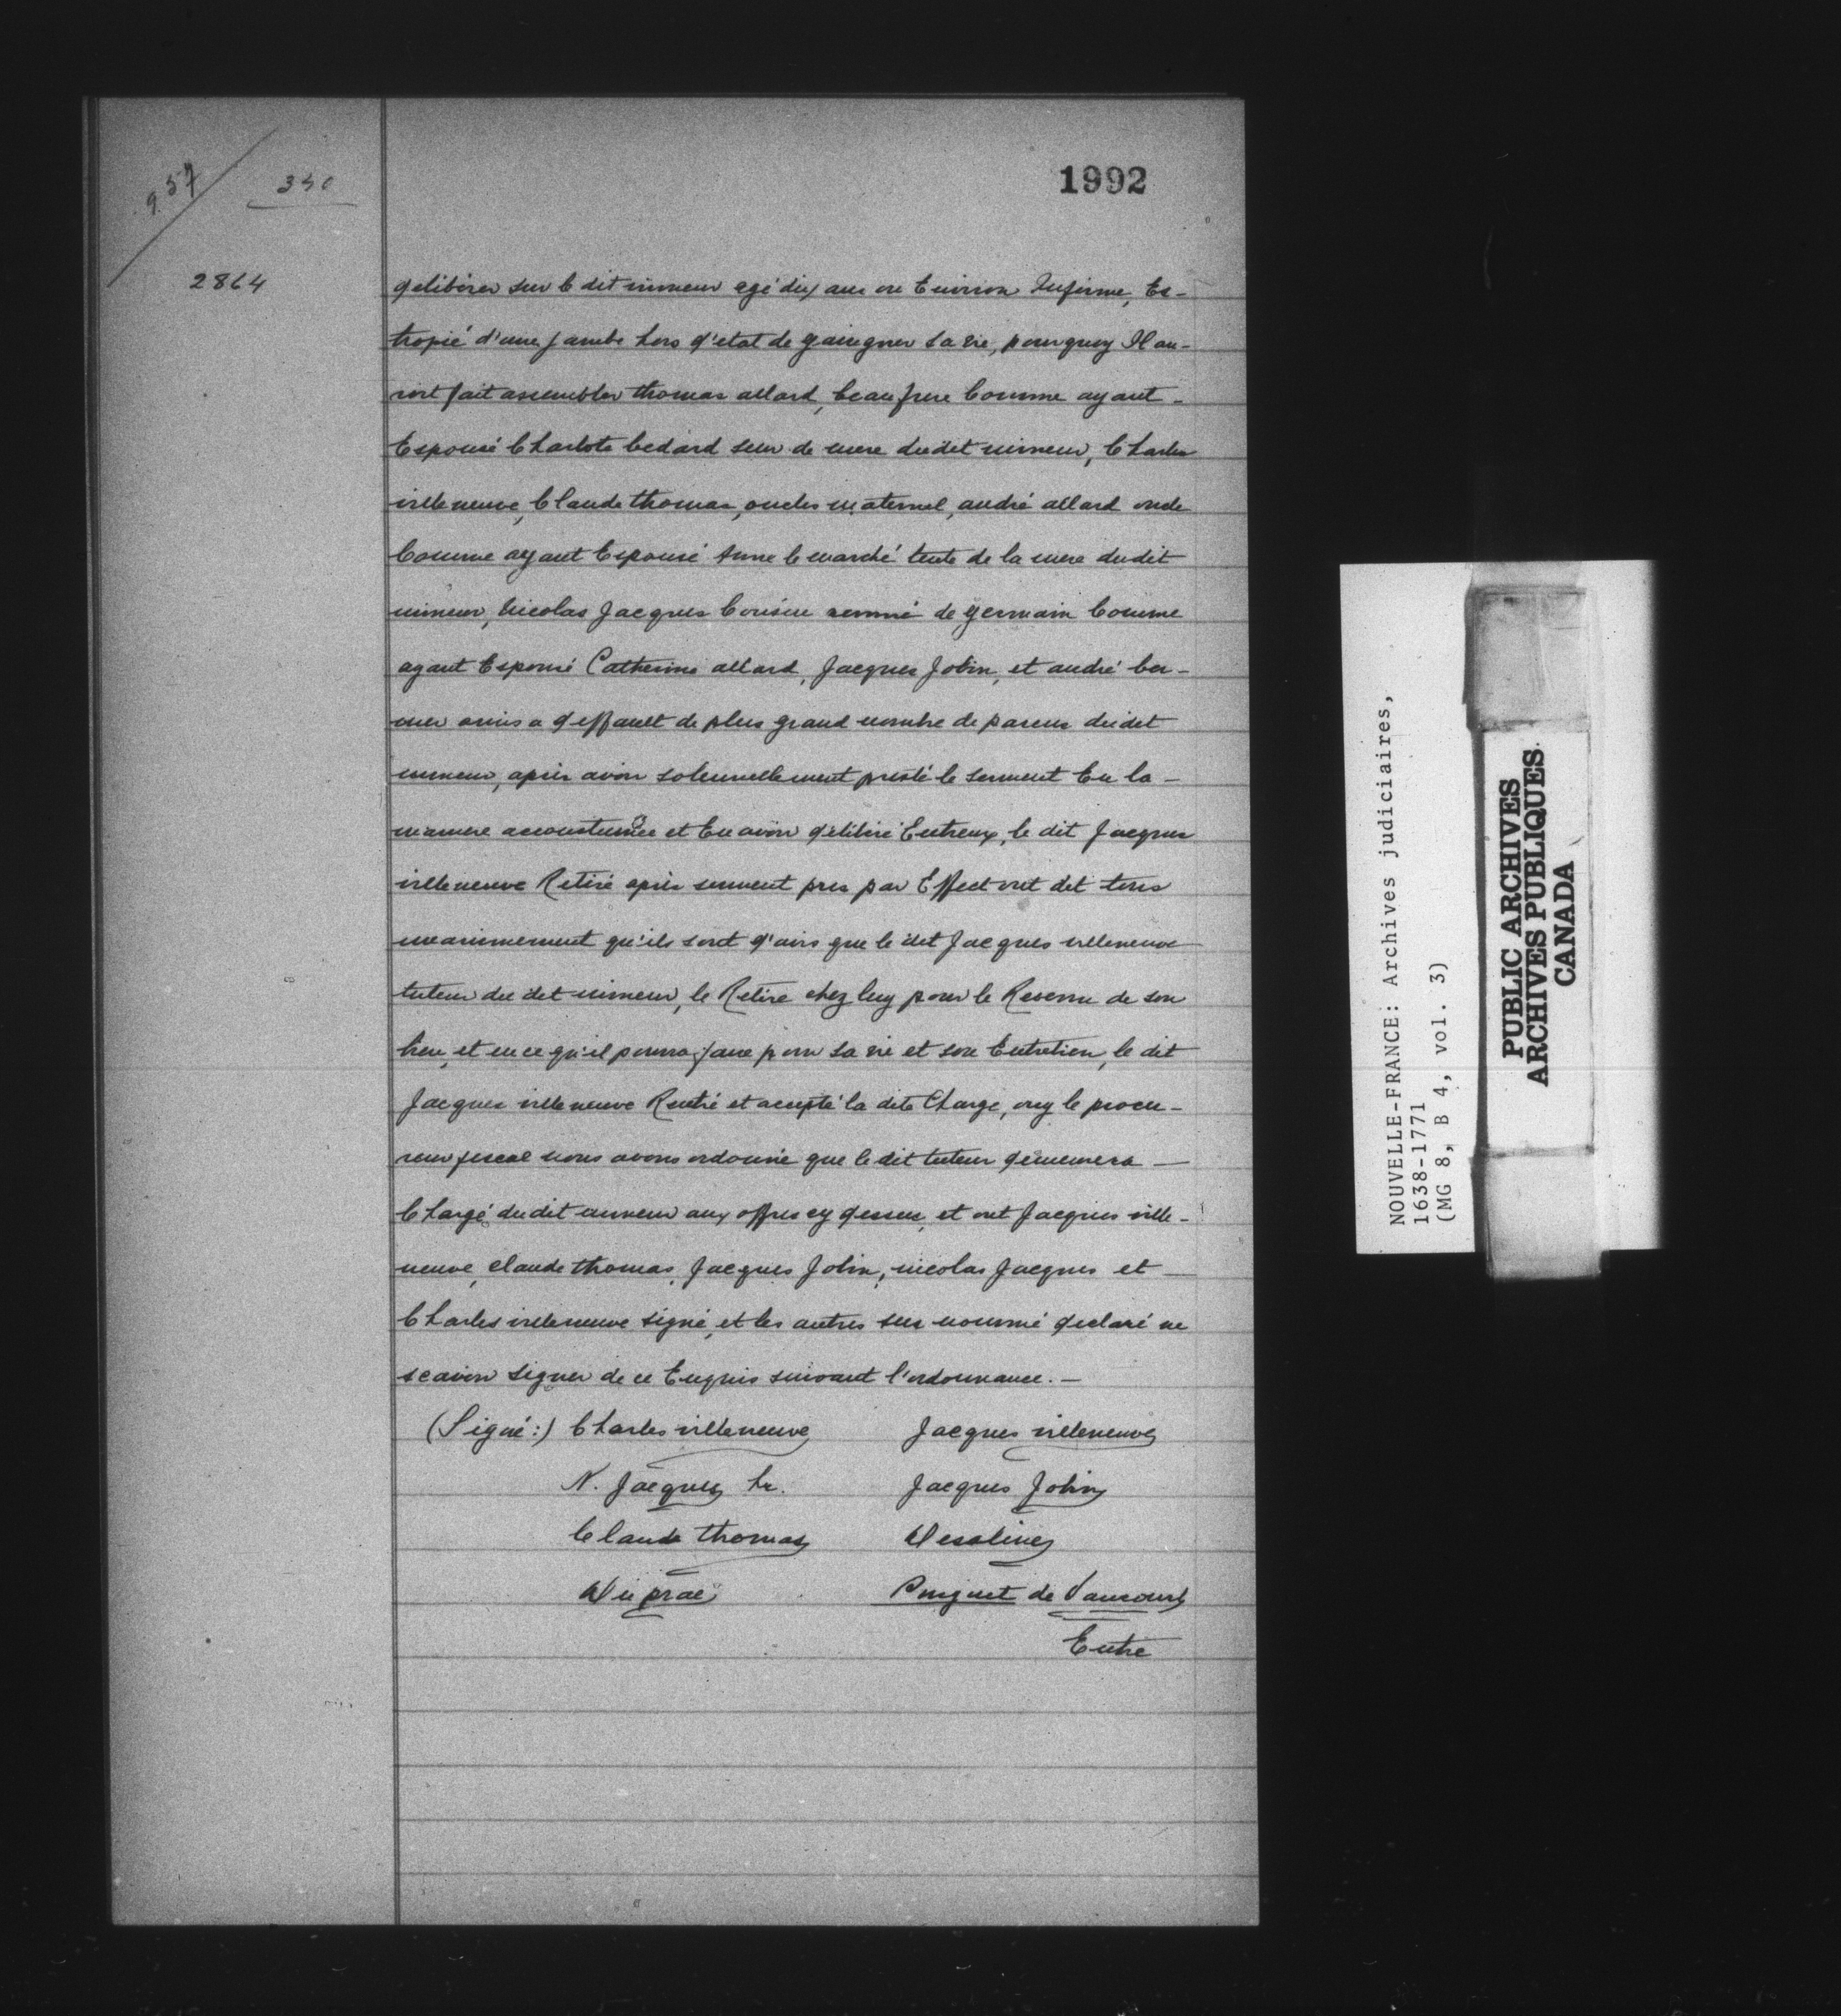 957
350
1992
2864
delibérer sur le dit mineur agé dix ans ou Environ Infirme, Es-
tropié d'une jambe hors d'etat de gaiegner sa vie, pourquoy Il au-
roit fait assembler thomas allard, beau frere Comme ayant -
Espousé Charlote bedard seur de mere dudit mineur, Charles
villeneuve, Claude thomas, oncles maternel, andré allard oncle
Comme ayant Espousé Anne le marché tente de la mere dudit
mineur, Nicolas Jacques Cousin remué de germain Comme
ayant Espousé Catherine allard, Jacques Jobin, et andré ber-
nier amis a deffault de plus grand nombre de parens dudit
mineur, après avoir solennellement presté le serment En la -
maniere accoustumée et En avoir délibéré Entreux, le dit Jacques
villeneuve Retiré après serment pres par Effect ont dit tous
unanimement qu'ils sont d'avis que le dit Jacques villeneuve
tuteur du dit mineur, le Retire chez luy pour le Revenu de son
bien, et en ce qu'il pourra faire pour sa vie et son Entretien, le dit
Jacques villeneuve Rentré et accepté la dite Charge, ouy le procu-
reur fiscal nous avons ordonné que le dit tuteur demeurera —
Chargé dudit mineur aux offres cy dessus, et ont Jacques ville-
neuve, claude thomas, Jacques Jobin, nicolas Jacques et —
Charles villeneuve signé, et les autres sus nommé declaré ne
scavoir signer de ce Enquis suivant l'ordonnance. —
(Signé:) Charles villeneuve Jacques villeneuve
N. Jacques Jacques Jobin
Claude thomas Desaline
Duprac Puiguet de Vaucourt
Entre
NOUVELLE-FRANCE: Archives judiciaires,
1638-1771
(MG 8, B 4, vol. 3)
PUBLIC ARCHIVES
ARCHIVES PUBLIQUES
CANADA